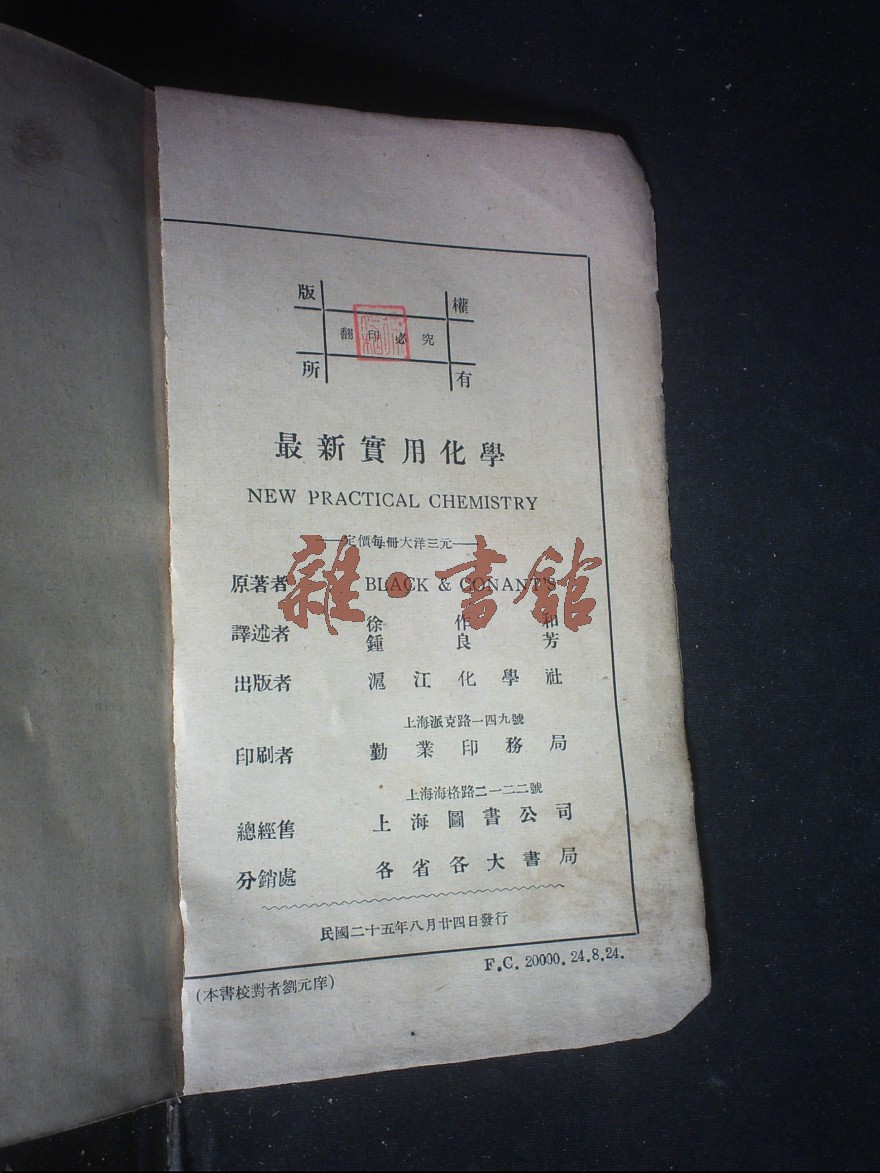 版 權
翻 印 必 究
所 有
最新實用化學
NEW PRACTICAL CHEMISTRY
——定價每冊大洋三元——
原著者 BLACK & CONANT'S
譯述者 徐作和
鍾良芳
出版者 滬江化學社
上海派克路一四九號
印刷者 勤業印務局
上海海格路二一二二號
總經售 上海圖書公司
分銷處 各省各大書局
民國二十五年八月廿四日發行
F.C. 20000. 24.8.24.
(本書校對者劉元庠)
雜·書館